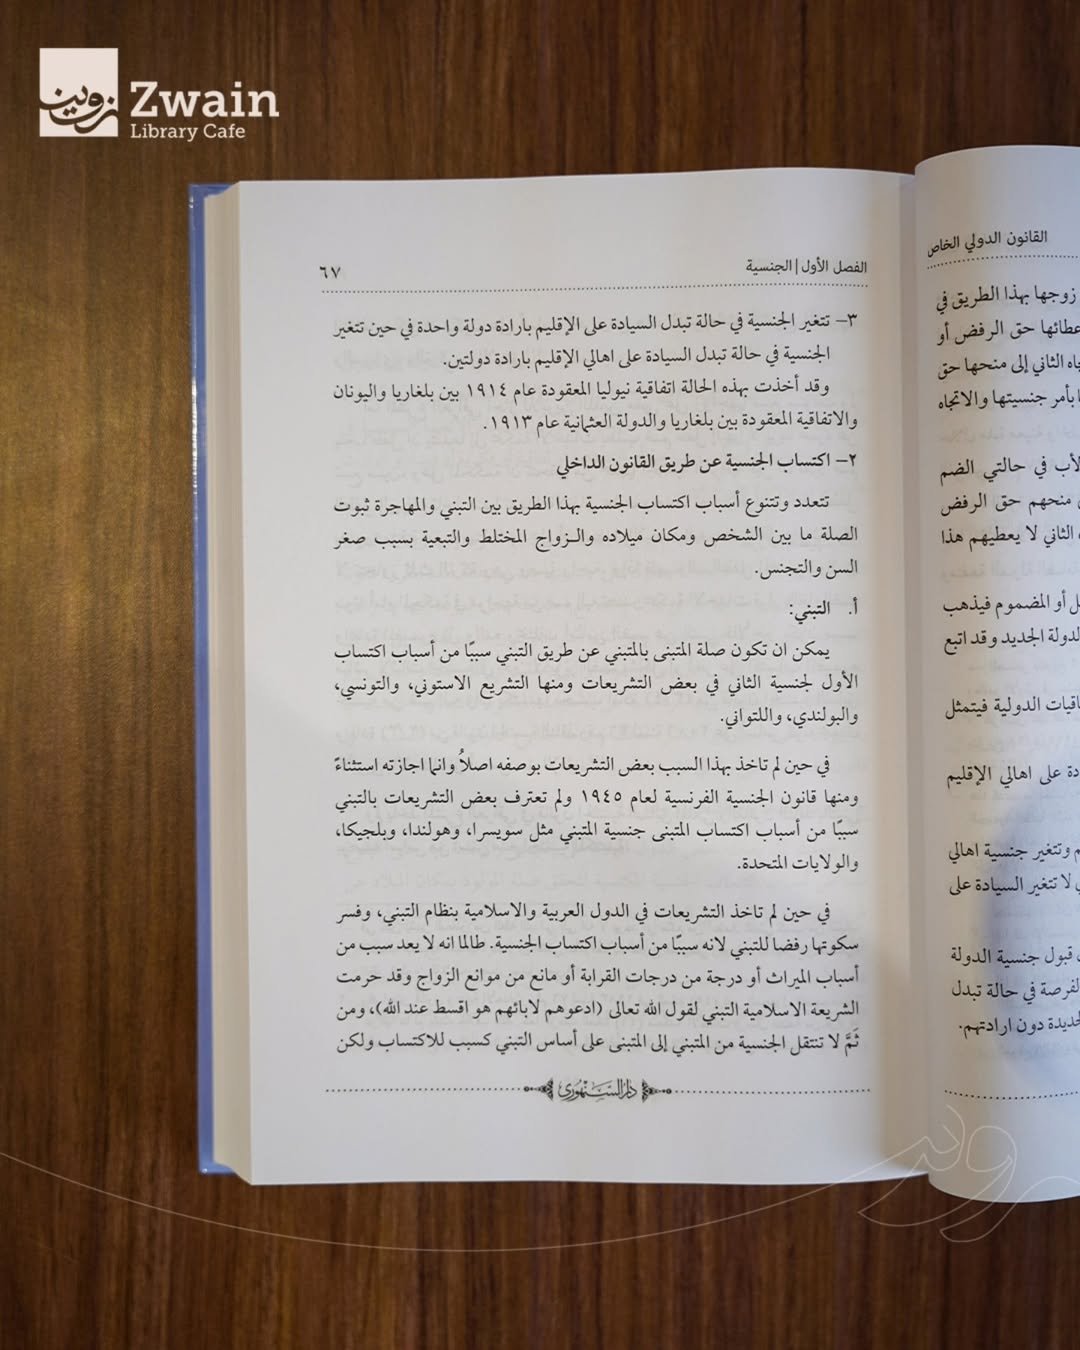 زوين
Zwain
Library Cafe
القانون الدولي الخاص
زوجها بهذا الطريق في
حق الرفض أو
الثاني إلى منحها حق
بأمر جنسيتها والاتجاه
في حالتي الضم
منحهم حق الرفض
الثاني لا يعطيهم هذا
أو المضموم فيذهب
الجديد وقد اتبع
الدولية فيتمثل
على اهالي الإقليم
وتتغير جنسية اهالي
لا تتغير السيادة على
قبول جنسية الدولة
في حالة تبدل
دون ارادتهم.
الفصل الأول | الجنسية ٦٧
٣– تتغير الجنسية في حالة تبدل السيادة على الإقليم بارادة دولة واحدة في حين تتغير
الجنسية في حالة تبدل السيادة على اهالي الإقليم بارادة دولتين.
وقد أخذت بهذه الحالة اتفاقية نيوليا المعقودة عام ١٩١٤ بين بلغاريا واليونان
والاتفاقية المعقودة بين بلغاريا والدولة العثمانية عام ١٩١٣.
٢– اكتساب الجنسية عن طريق القانون الداخلي
تتعدد وتتنوع أسباب اكتساب الجنسية بهذا الطريق بين التبني والمهاجرة ثبوت
الصلة ما بين الشخص ومكان ميلاده والزواج المختلط والتبعية بسبب صغر
السن والتجنس.
أ. التبني:
يمكن ان تكون صلة المتبنى بالمتبني عن طريق التبني سببًا من أسباب اكتساب
الأول لجنسية الثاني في بعض التشريعات ومنها التشريع الاستوني، والتونسي،
والبولندي، واللتواني.
في حين لم تاخذ بهذا السبب بعض التشريعات بوصفه اصلاً وانما اجازته استثناءً
ومنها قانون الجنسية الفرنسية لعام ١٩٤٥ ولم تعترف بعض التشريعات بالتبني
سببًا من أسباب اكتساب المتبنى جنسية المتبني مثل سويسرا، وهولندا، وبلجيكا،
والولايات المتحدة.
في حين لم تاخذ التشريعات في الدول العربية والاسلامية بنظام التبني، وفسر
سكوتها رفضا للتبني لانه سببًا من أسباب اكتساب الجنسية. طالما انه لا يعد سبب من
أسباب الميراث أو درجة من درجات القرابة أو مانع من موانع الزواج وقد حرمت
الشريعة الاسلامية التبني لقول الله تعالى (ادعوهم لابائهم هو اقسط عند الله)، ومن
ثَمَّ لا تنتقل الجنسية من المتبني إلى المتبنى على أساس التبني كسبب للاكتساب ولكن
دار السنهوري
زوين